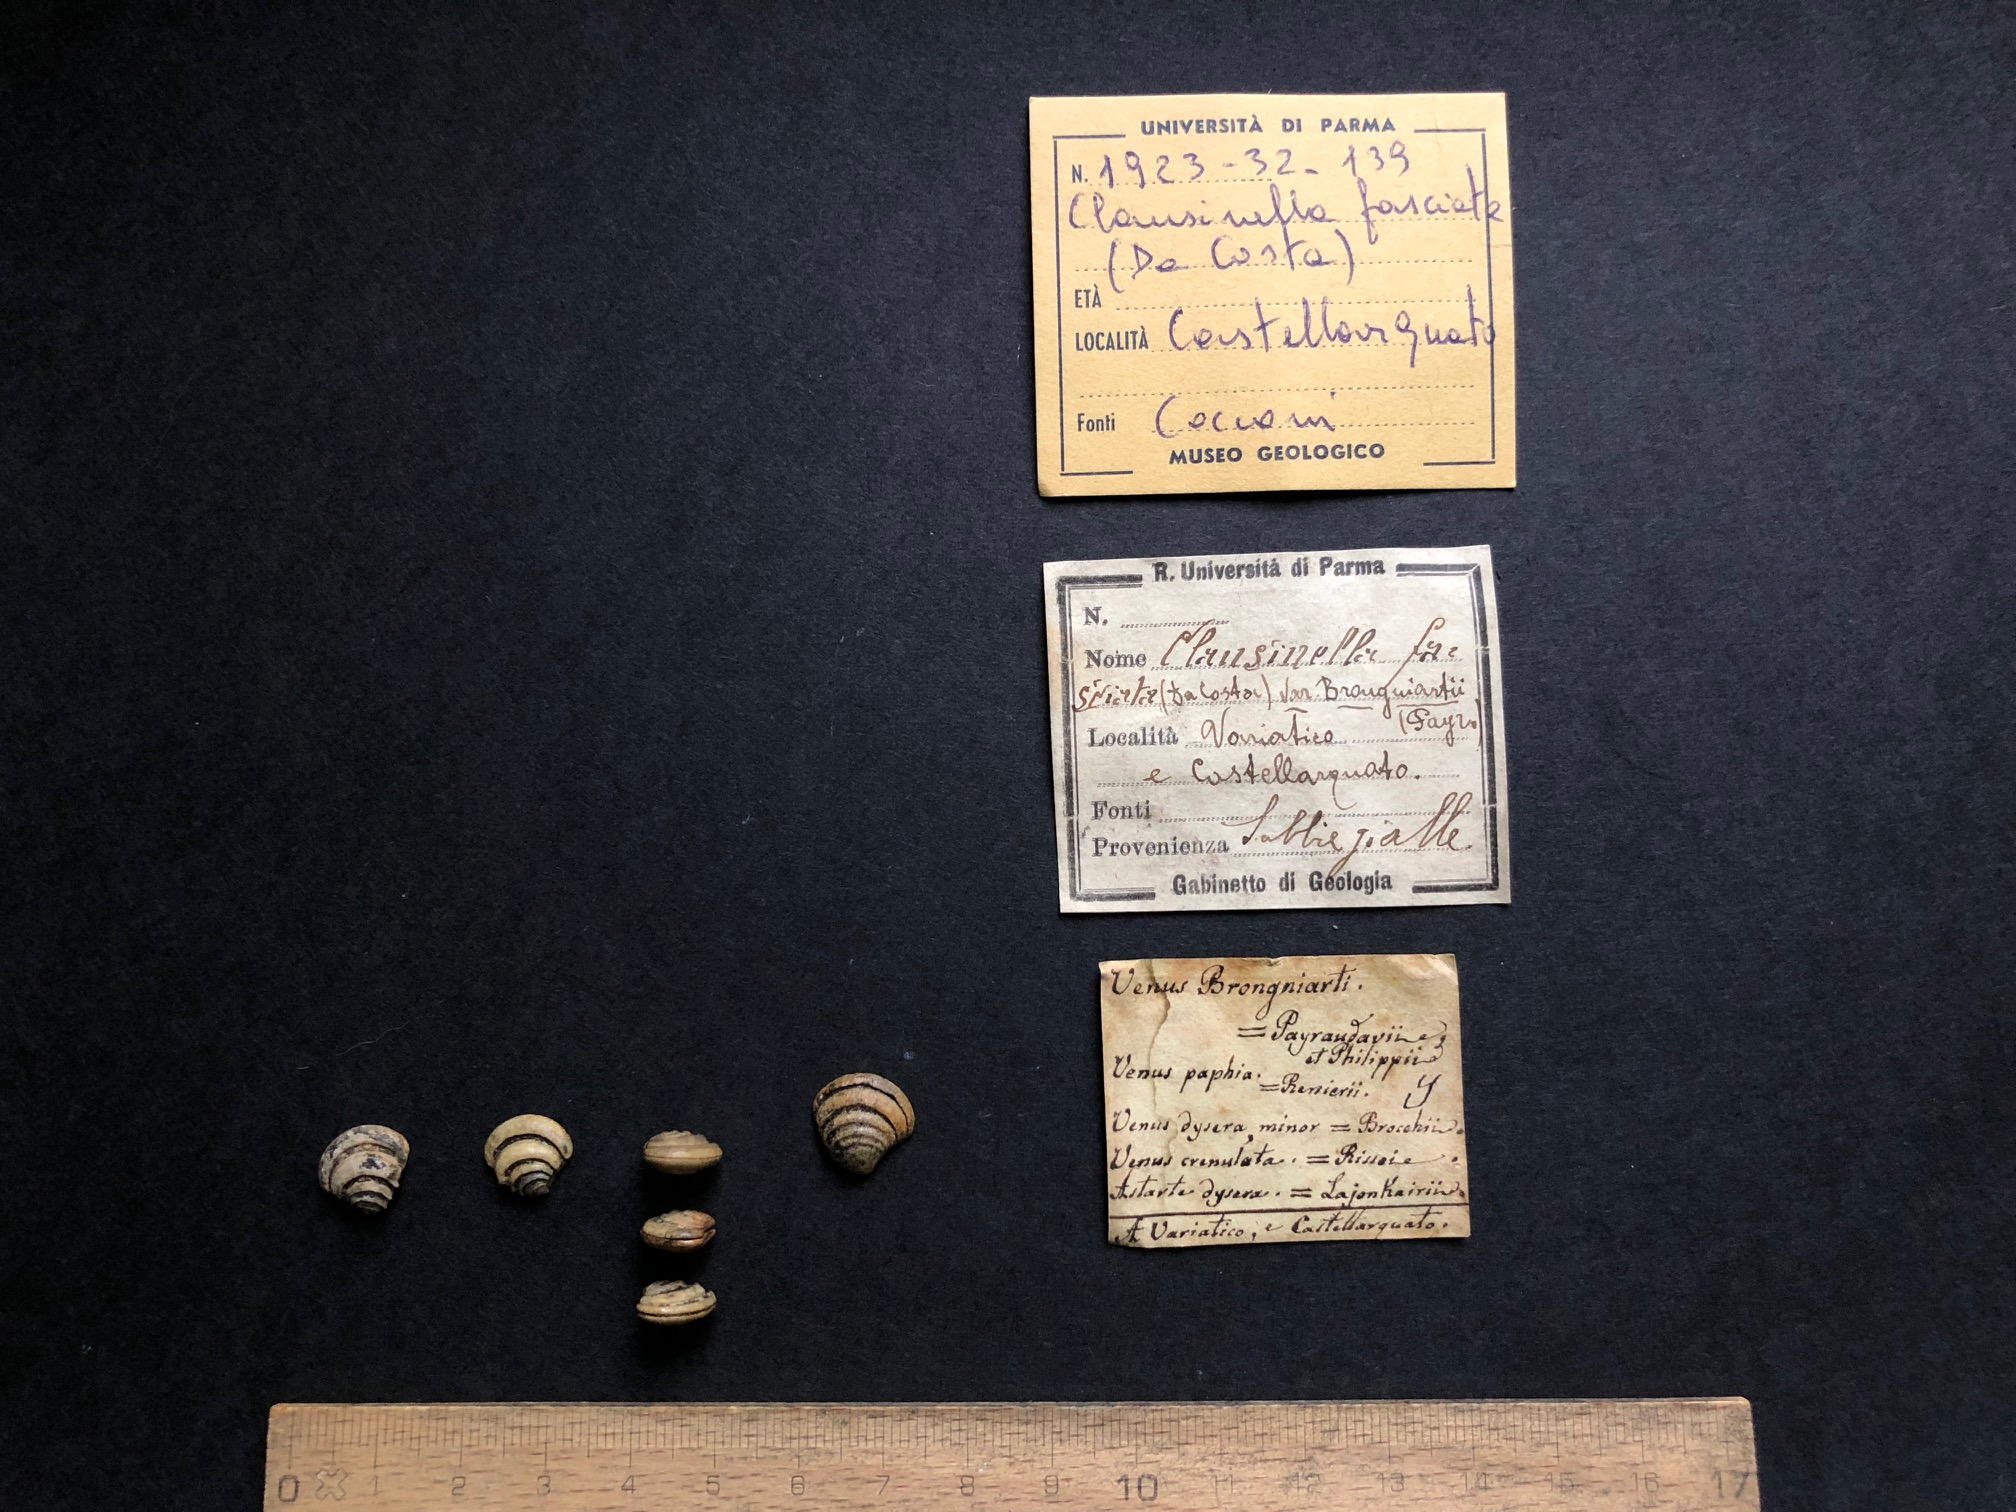 UNIVERSITÀ DI PARMA
N. 1923-32-139
Clausinella fasciata
(Da Costa)
ETÀ
LOCALITÀ Castellarquato
Fonti Cocconi
MUSEO GEOLOGICO
R. Università di Parma
N.
Nome Clausinella fa=
sciata (Da Costa) var. Brongniartii
(Payr.)
Località Variatico
e Castellarquato.
Fonti
Provenienza Sabbie gialle.
Gabinetto di Geologia
Venus Brongniarti.
= Payraudavii
et Philippii
Venus paphia.
= Renierii.
Venus dysera, minor = Brocchii.
Venus crenulata. = Rissoi
Astarte dysera. = Lajonkairii.
A Variatico, e Castellarquato.
0 1 2 3 4 5 6 7 8 9 10 11 12 13 14 15 16 17